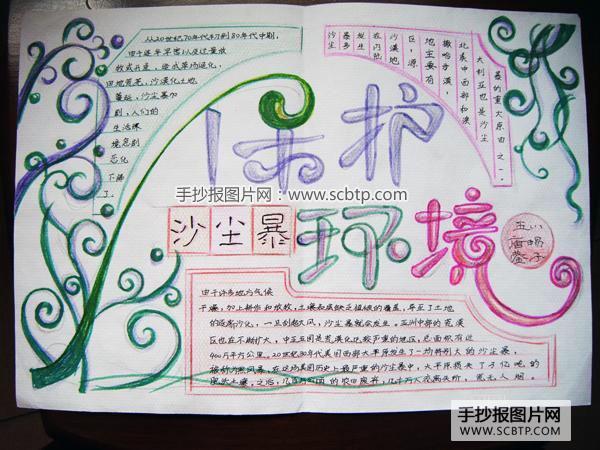 从20世纪70年代初到80年代中期,
由于连年旱灾以及过量放
牧式开垦,造成草场退化,
田地荒芜,沙漠化土地
蔓延,沙尘暴加
剧,人们的
生活环
境急剧
恶化
下降
了.
保护
环境
沙尘暴
手抄报图片网:www.scbtp.com
暴的重大原因之一.
大利亚也是沙尘
北美中西部和澳
撒哈步漠,
地主要有
区,源
沙漠地
在内陆
发生
暴多
沙尘
由于许多地方气候
干燥,加上耕作和放牧,土壤和底缺乏植被的覆盖,导至了土地
的逐渐沙化,一旦刮起大风,沙尘暴就会发生,亚洲中部的荒漠
区也在不断扩大,中东五国是荒漠化比较严重的地区,总面积有近
400万平方公里。20世纪30年代美国西部大平原发生了一场特别大的沙尘暴,
被称为黑风暴,在这场美国历史上最严重的沙尘暴中,大平原损失了3亿吨的
之后,几百万公顷的农田废弃,几十万人流离失所,荒无人烟.
手抄报图片网
WWW.SCBTP.COM